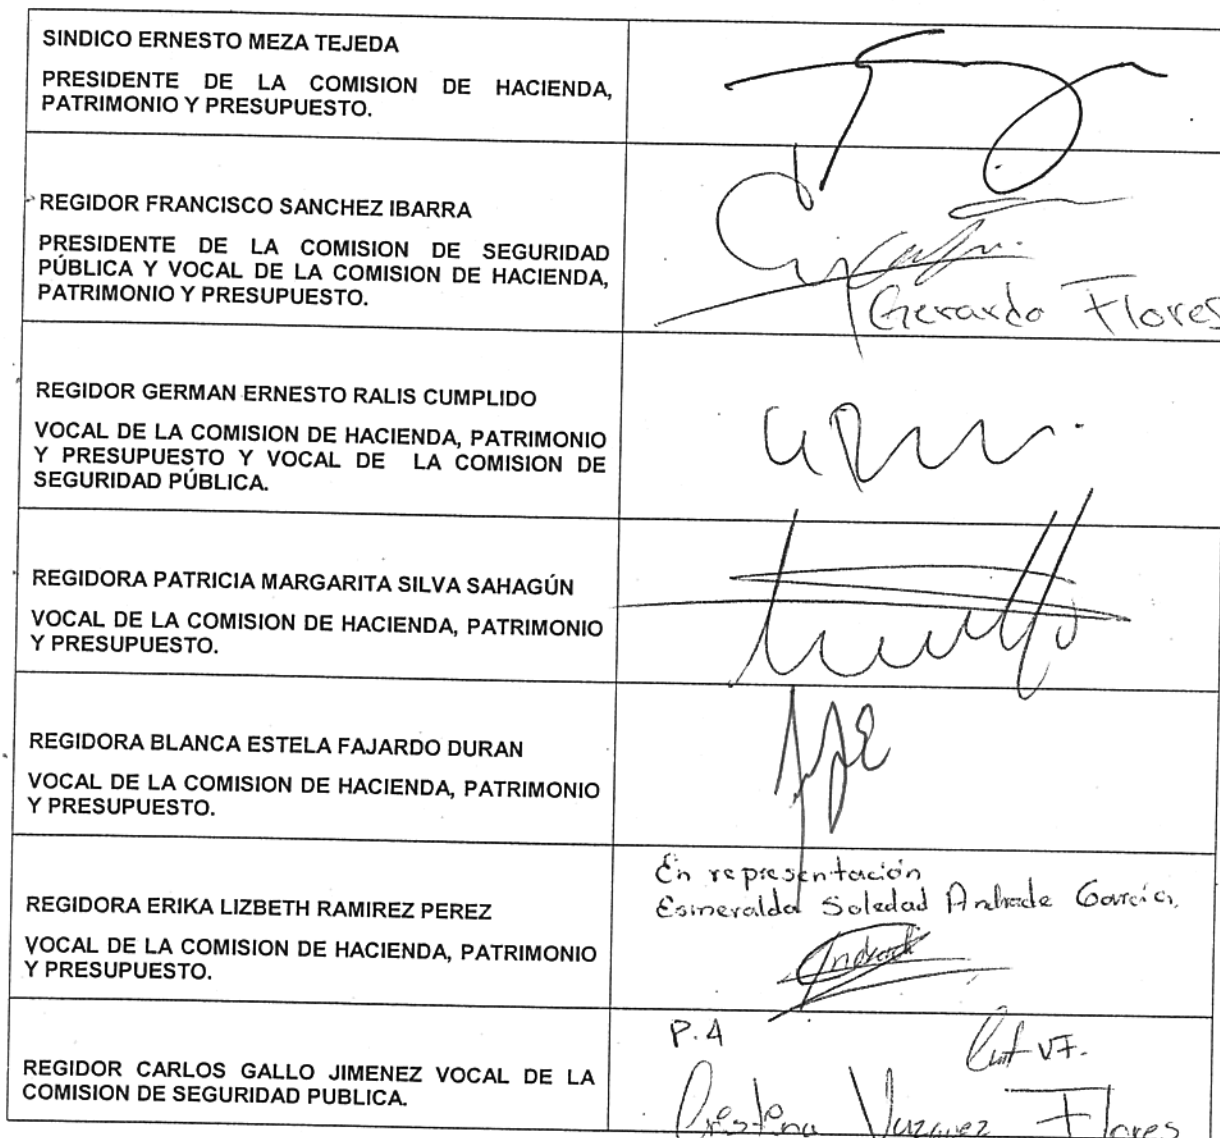 SINDICO ERNESTO MEZA TEJEDA
PRESIDENTE DE LA COMISION DE HACIENDA,
PATRIMONIO Y PRESUPUESTO.
REGIDOR FRANCISCO SANCHEZ IBARRA
PRESIDENTE DE LA COMISION DE SEGURIDAD
PÚBLICA Y VOCAL DE LA COMISION DE HACIENDA,
PATRIMONIO Y PRESUPUESTO.
Gerardo Flores
REGIDOR GERMAN ERNESTO RALIS CUMPLIDO
VOCAL DE LA COMISION DE HACIENDA, PATRIMONIO
Y PRESUPUESTO Y VOCAL DE LA COMISION DE
SEGURIDAD PÚBLICA.
REGIDORA PATRICIA MARGARITA SILVA SAHAGÚN
VOCAL DE LA COMISION DE HACIENDA, PATRIMONIO
Y PRESUPUESTO.
REGIDORA BLANCA ESTELA FAJARDO DURAN
VOCAL DE LA COMISION DE HACIENDA, PATRIMONIO
Y PRESUPUESTO.
REGIDORA ERIKA LIZBETH RAMIREZ PEREZ
VOCAL DE LA COMISION DE HACIENDA, PATRIMONIO
Y PRESUPUESTO.
En representación
Esmeralda Soledad Andrade García.
REGIDOR CARLOS GALLO JIMENEZ VOCAL DE LA
COMISION DE SEGURIDAD PUBLICA.
P.A
Cristina Vazquez Flores